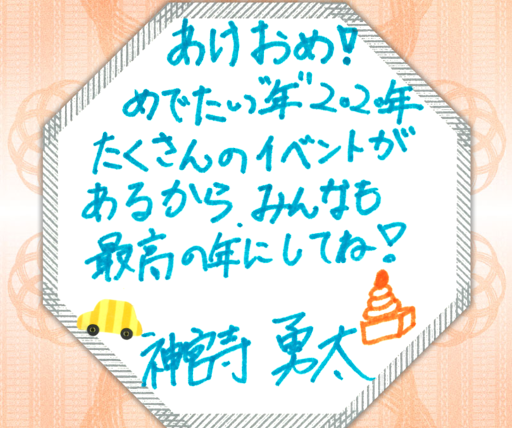 あけおめ!
めでたい"年"2020年
たくさんのイベントが
あるから、みんなも
最高の年にしてね!
神宮寺 勇太